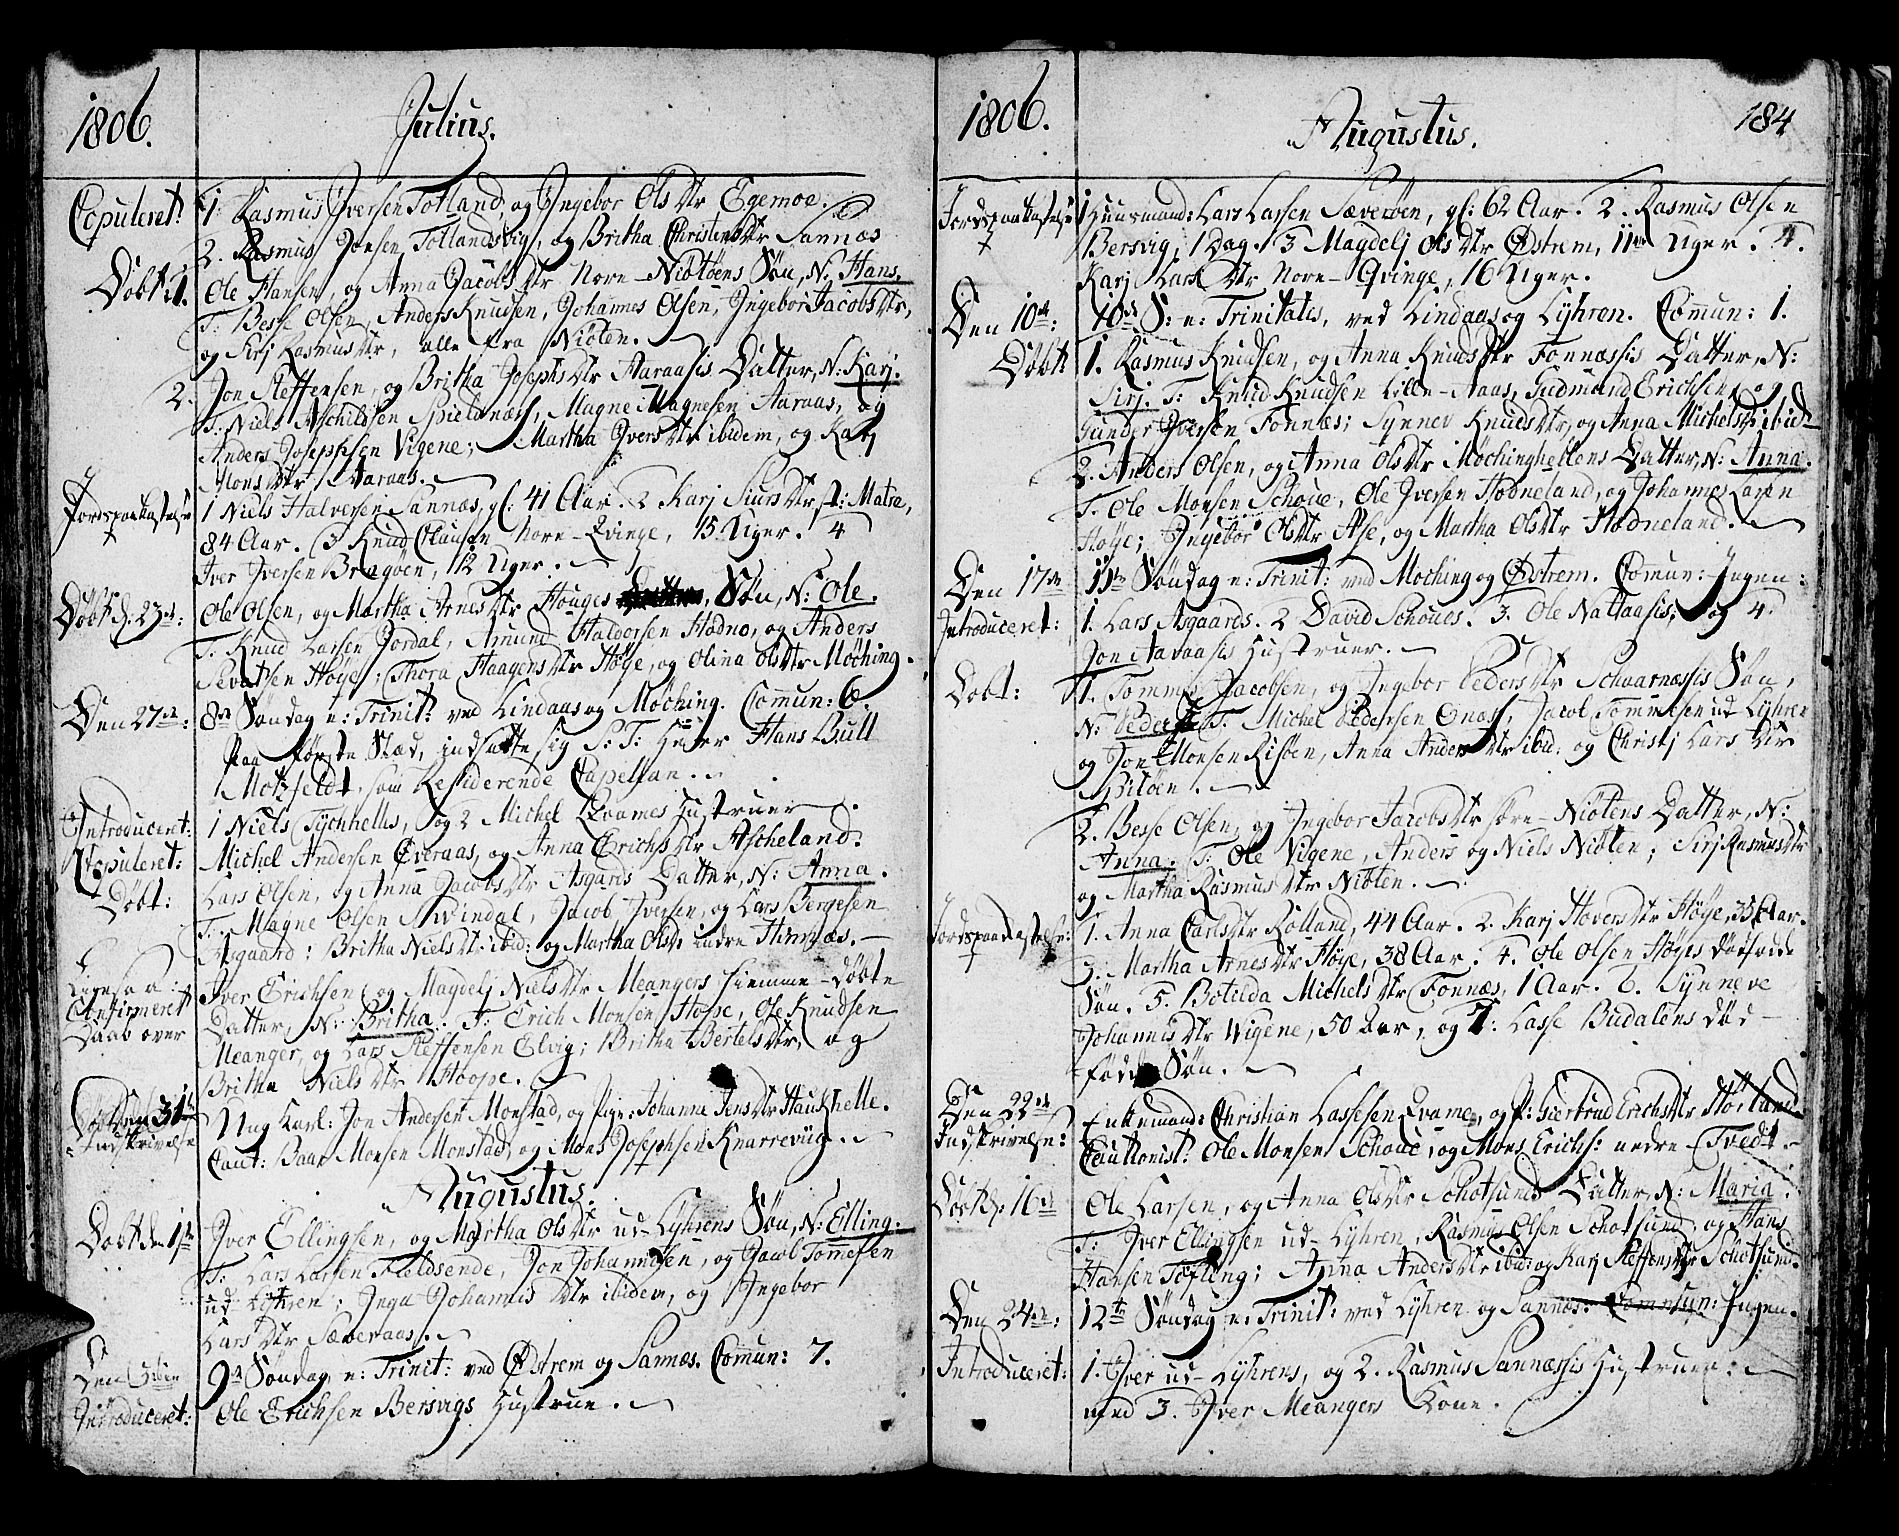 1806.
Julius.
Copuleret:
1. Rasmus Iversen Totland, og Ingebor Ols Dtr Egemoe.
2. Rasmus Jonsen Tollandsvig, og Britha Christens Dtr Sannæs
Døbt: 1.
Ole Hansen, og Anna Jacobs Dtr Nore-Niøtøens Søn, N: Hans.
T: Besse Olsen, Anders Knudsen, Johannes Olsen, Ingebor Jacobs Dtr,
og Sirj Rasmus Dtr, alle fra Niøten.
2. Jon Steffensen, og Britha Josephs Dtr Aaraasis Datter, N: Karj.
T: Niels Aschildsen Spieldnæs, Magne Magnesen Aaraas, og
Anders Josephsen Vigene; Martha Ivers Dtr ibidem, og Karj
Mons Dtr Aaraas.
Jordspaakastelse
1 Niels Halvorsen Sannæs, gl: 41 Aar. 2 Karj Siurs Dtr st: Matre,
84 Aar. 3 Knud Clausen Nore-Qvinge, 15 Uger. 4
Iver Iversen Bragøen, 12 Uger.
Døbt d: 23de:
Ole Olsen, og Martha Arnes Dtr Høuges Søn, N: Ole.
T: Knud Larsen Jordal, Amund Haldorsen Hodno, og Anders
Sevatsen Høye; Thora Haagens Dtr Høye, og Olina Ols Dtr Møching.
Den 27de:
8de Søndag e: Trinit: ved Lindaas og Møching. Commun: 6.
Paa første Stæd, indsatte sig S: T: Herr Hans Bull
Motzfeldt, som Residerende Capellan.
Introduceret:
1 Niels Tychhelles, og 2 Michel Qvames Hustruer.
Copuleret:
Michel Andersen Qveraas, og Anna Erichs Dtr Ascheland.
Døbt:
Lars Olsen, og Anna Jacobs Dtr Asgaards Datter, N: Anna.
T: Magne Olsen Svindal, Jacob Iversen, og Lars Bergesen
Asgaard; Britha Niels Dtr ibid: og Martha Ols D: indre Hinnæs.
Ligesaa:
Confirmeret
Daab over
Iver Erichsen og Magdelj Niels Dtr Meangers hiemme-døbte
Datter, N: Britha. T: Erich Monsen Hope, Ole Knudsen
Meanger, og Lars Steffensen Elvig; Britha Bertels Dtr, og
Britha Niels Dtr Hoope.
Den 31te
Indskrivelse
Ung Karl: Jon Andersen Monstad, og Pige: Johanna Jens Dtr Haukhelle.
Caut: Baar Monsen Monstad, og Mons Josephsen Knarrevüg.
Augustus.
Døbt den 1ste
Iver Ellingsen, og Martha Ols Dtr ud-Lyhrens Søn, N: Elling.
T: Lars Larsen Fieldsende, Jon Johannesen, og Jacob Tomesen
ud Lyhren; Inga Johannis Dtr ibidem, og Ingebor
Lars Dtr Sæveraas.
9de Søndag e: Trinit: ved Østrem og Sannæs. Commun: 7.
Introduceret:
Ole Erichsen Bersvigs Hustrue.
1806.
Augustus.
184
Jordspaakastelse
1 Huusmand: Lars Larsen Sæverøen, gl: 62 Aar. 2. Rasmus Olsen
Bersvig, 1 Dag. 3 Magdelj Ols Dtr Østrem, 11 Uger. 4.
Karj Lars Dtr Nore-Qvinge, 16 Uger.
Den 10de:
10de S: e: Trinitates, ved Lindaas og Lyhren. Commun: 1.
Døbt
1. Rasmus Knudsen, og Anna Knuds Dtr Fonnæssis Datter, N:
Sirj. T: Knud Knudsen Lille-Aaas, Gudmund Erichsen, og
Gunder Iversen Fonnæs; Synnev Knuds Dtr, og Anna Michels D: ibid-
2. Anders Olsen, og Anna Ols Dtr Møchinghellens Datter, N: Anna.
T: Ole Monsen Schoue, Ole Iversen Hodneland, og Johannes Larsen
Høye; Ingebor Ols Dtr Ase, og Martha Ols Dtr Hodneland.
Den 17de
11te Søndag e: Trinit: ved Moching og Østrem. Comun: Ingen:
Introduceret:
1. Lars Asgaards. 2 David Schoues. 3. Ole Nattaasis, og 4.
Jon Aaraasis Hustruer.
Døbt:
1. Tommes Jacobsen, og Ingebor Peders Dtr Schaarnæssis Søn,
N: Peder. T: Michel Pedersen Enæs, Jacob Tommesen ud Lyhren
og Jon Monsen Risøen, Anna Anders Dtr ibid: og Christj Lars Dtr
Spiløen.
2. Besse Olsen, og Ingebor Jacobs Dtr søre-Niøtens Datter, N:
Anna. T: Ole Vigene, Anders og Niels Niøten; Sirj Rasmus Dtr
og Martha Rasmus Dtr Niøten.
Jordspaakastelse:
1. Anna Carls Dtr Rolland, 44 Aar. 2. Karj Hovers Dtr Høye, 35 Aar.
3. Martha Arnes Dtr Høye, 38 Aar. 4. Ole Olsen Høyes dødfødde
Søn. 5. Botilda Michels Dtr Fonnæs, 1 Aar. 6. Synneve
Johannis Dtr Wigene, 50 Aar, og 7: Lasse Budalens død-
fødde Søn.
Den 22de
Indskrivelse:
Enkemand: Christian Lassesen Qvame, og P: Giertrud Erichs Dtr Hørland
Cautionist: Ole Monsen Schoue, og Mons Erichs: nedre Tvedt.
Døbt d: 16de
Ole Larsen, og Anna Ols Dtr Schotsunds Datter, N: Maria.
T: Iver Ellingsen ud-Lyhren, Rasmus Olsen Schotsund, og Hans
Hansen Tofting; Anna Anders Dtr ibid: og Karj Steffens Dtr Schotsund.
Den 24de:
12te Søndag e: Trinit: ved Lyhren og Sannæs. Commun: Ingen.
Introduceret:
1. Iver ud-Lyhrens, og 2. Rasmus Sannæssis Hustruer:
med 3. Iver Meangers Kone.